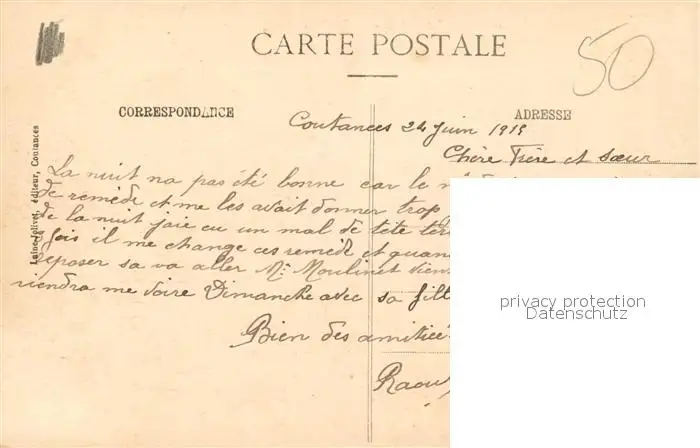 50
CARTE POSTALE
CORRESPONDANCE
ADRESSE
Laine-Jolivet, éditeur, Coutances
Coutances 24 juin 1919
Chère Frère et sœur
La nuit na pas été bonne car le
de remède et me les avait donner trop
de la nuit jaie eu un mal de tête
fois il me change ces remède et quan
reposer sa va aller Mr Moulinet vien
viendra me voire Dimanche avec sa fill
Bien des amitiée
Raoul
privacy protection
Datenschutz